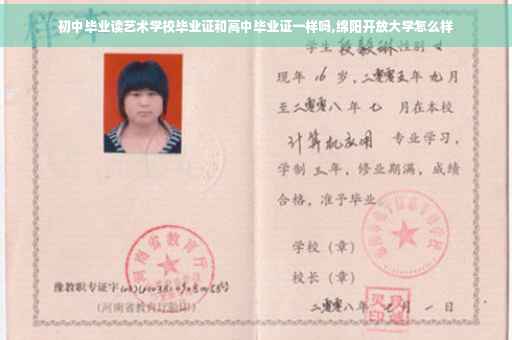 初中毕业读艺术学校毕业证和高中毕业证一样吗,绵阳开放大学怎么样
样本
学生 段毅琳 性别 女
现年 16 岁,二零零五年 九月
至二零零八年 七 月在本校
计算机应用 专业学习,
学制 三 年,修业期满,成绩
合格,准予毕业
学校(章)
校长(章)
二零零八年 七 月 一 日
河南省教育厅
豫教职专证字
(河南省教育厅验印)